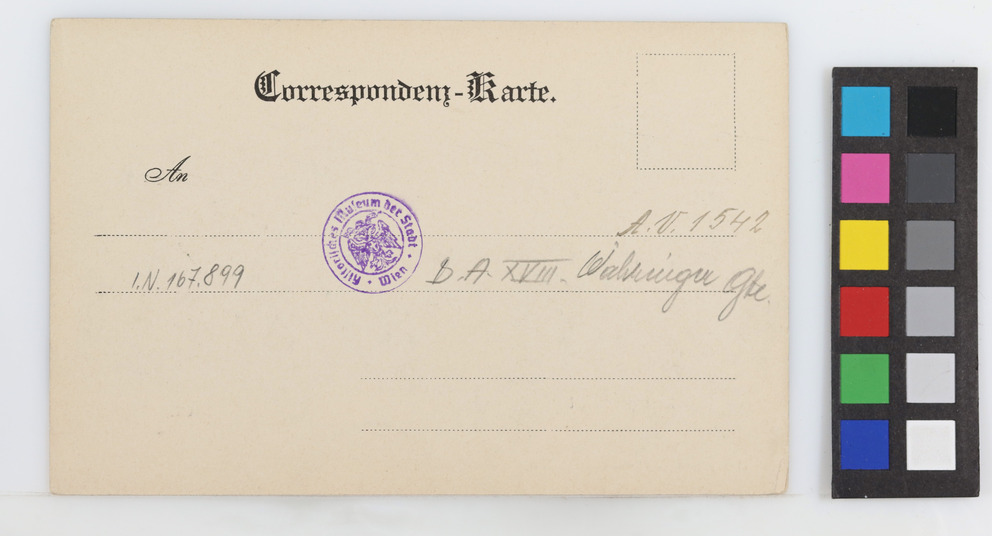 Correspondenz-Karte.
An
Historisches Museum der Stadt • Wien •
A.V. 1542
I.N. 167.899
B.A. XVIII. Währinger Gte.